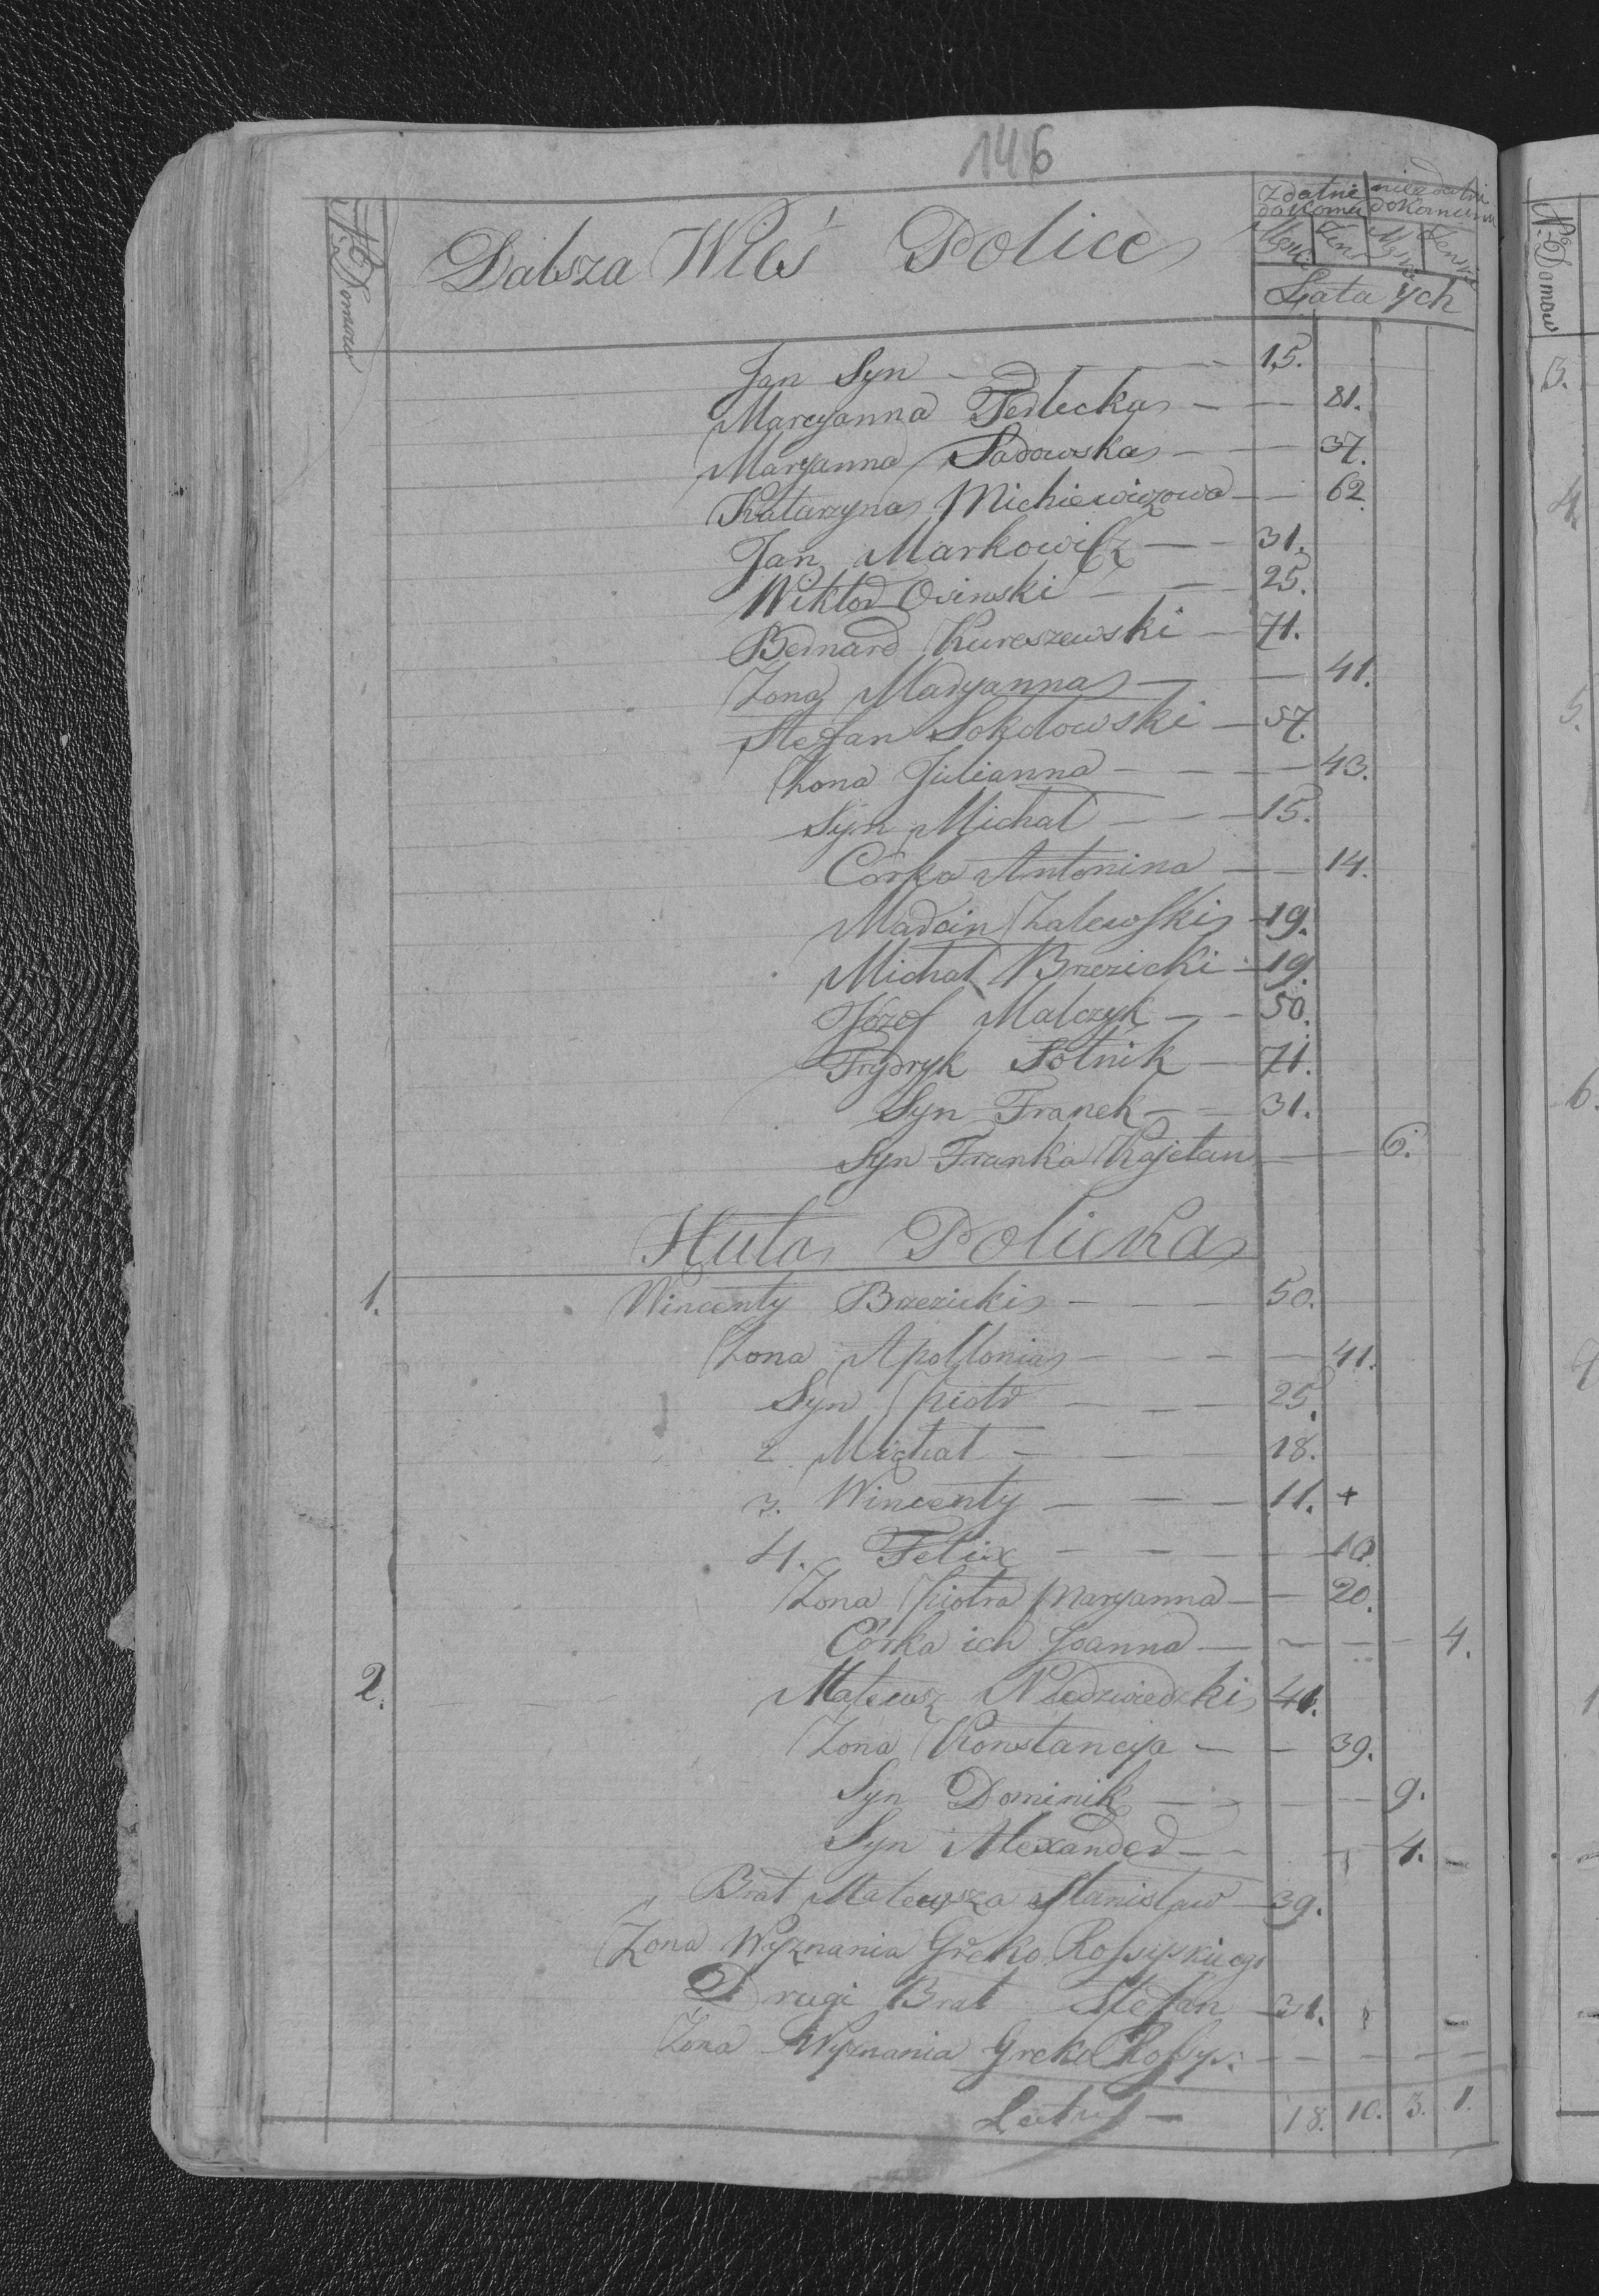 146
No Domow
Dalsza Wieś Police
Zdatni do Komu niezdatni do Komunii
Męski Żen Męski Żeński
Lata ych
Jan Syn — — 15.
Marcyanna Pedlecka — — 81.
Maryanna Sadowska — — 37.
Katarzyna Michiewiczowa — — 62.
Jan Markowicz — — 31.
Wiktor Osinski — — 25.
Bernard Kureszewski — 71.
Zona Maryanna — — 41.
Stefan Sokolowski — 57.
Zona Julianna — — — — 43.
Syn Michał — — — 15.
Córka Antonina — — 14.
Marcin Zalewski — 19.
Michał Brzezicki — 19.
Józef Malczyk — — 50.
Frydryk Sotnik — 71.
Syn Franek — — 31.
Syn Franka Kajetan — — 6.
Huta Policka
1. Wincenty Brzezicki — — — 50.
Zona Apollonia — — — — 41.
Syn Piotr — — — 25.
2. Michał — — — 18.
3. Wincenty — — — 11. +
4. Felix — — — — 10.
Zona Piotra Maryanna — — 20.
Córka ich Joanna — — — — 4.
2. Mateusz Niedzwiedzki 41.
Zona Konstancya — — 39.
Syn Dominik — — — — 9.
Syn Alexander — — — 4. —
Brat Mateusza Stanisław — 39.
Zona Wyznania Greko Rossyiskiego
Drugi Brat Stefan — 31. —
Zona Wyznania Greko Rossys: — — — — —
Latus — 18. 10. 3. 1.
No Domow
3.
4.
5.
6.